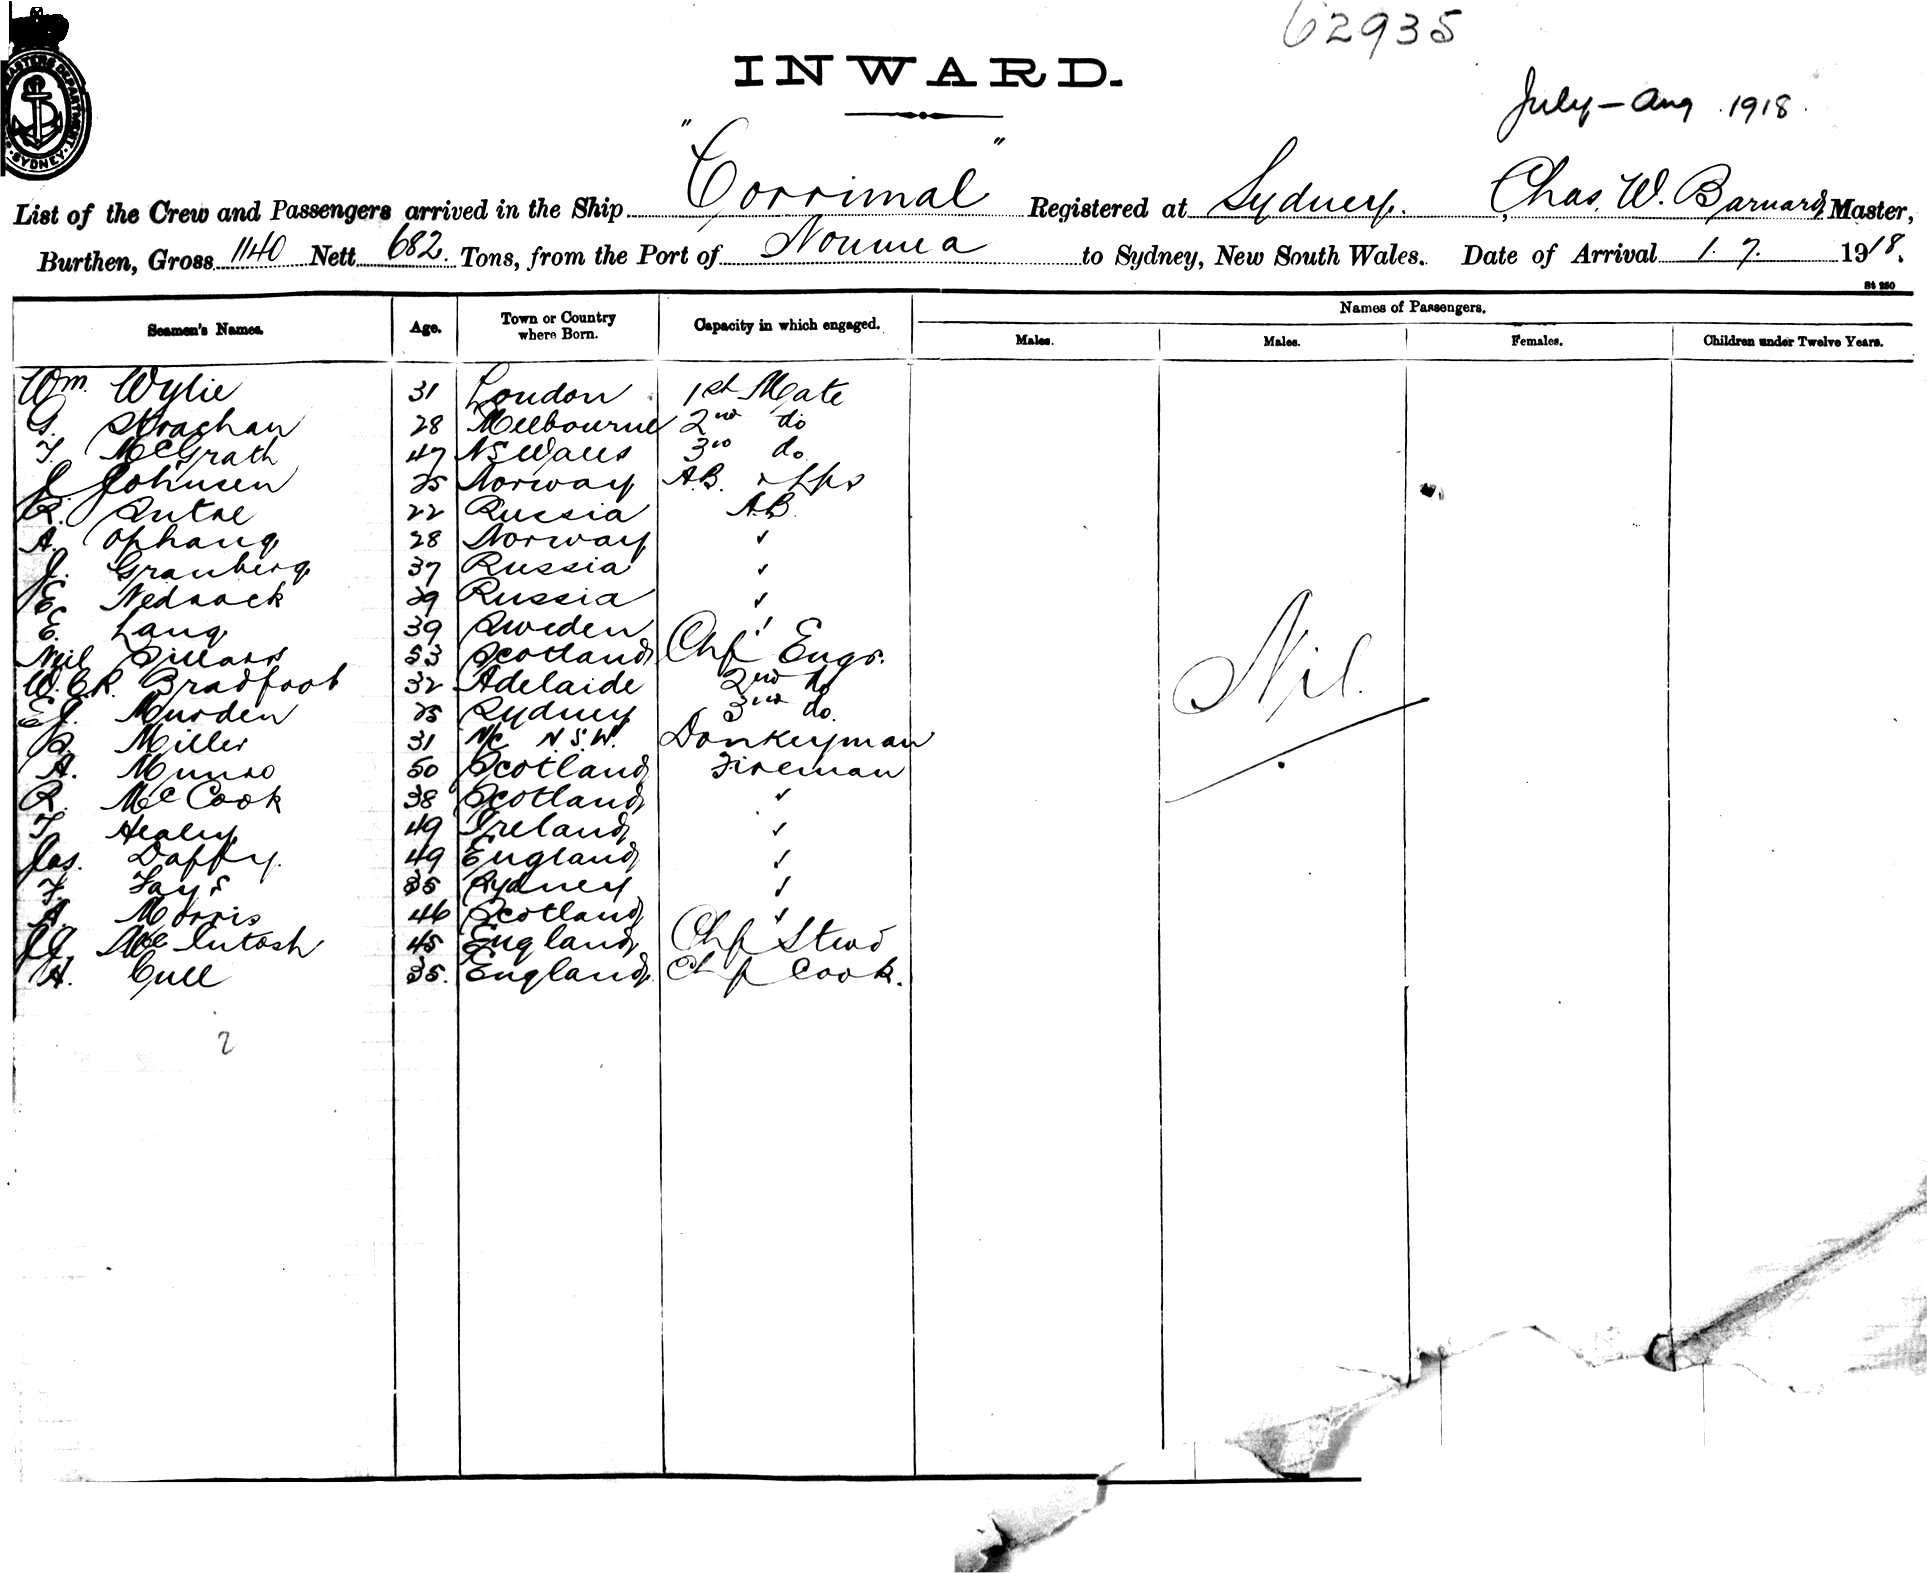 62935
INWARD.
July - Aug. 1918.
SYDNEY
List of the Crew and Passengers arrived in the Ship "Corrimal" Registered at Sydney. Chas. W. Barnard, Master,
Burthen, Gross 1140 Nett 682. Tons, from the Port of Noumea to Sydney, New South Wales. Date of Arrival 1. 7. 1918.
St 250
Names of Passengers.
Seamen's Names. Age. Town or Country where Born. Capacity in which engaged. Males. Males. Females. Children under Twelve Years.
Wm. Wylie 31 London 1st Mate
G. Strachan 28 Melbourne 2nd do
T. McGrath 47 N S Wales 3rd do
J. Johnsen 25 Norway A.B.
R. 22 Russia A.B.
A. Ophaug 28 Norway
J. Granberg 37 Russia
E. 29 Russia
E. Lang 39 Sweden
Neil Sillars 53 Scotland Chf Engr.
W. C. R. Bradfoot 32 Adelaide 2nd do
E J. Murden 25 Sydney 3rd do.
B. Miller 31 N/c N.S.W. Donkeyman
A. Munro 50 Scotland Fireman
R. McCook 38 Scotland
T. Healey 49 Ireland
Jas. Daffy. 49 England
F. Fays 35 Sydney
A. Morris 46 Scotland
J G McIntosh 45 England Chf Stwd
H. Cull 35. England Chf Cook.
Nil.
2